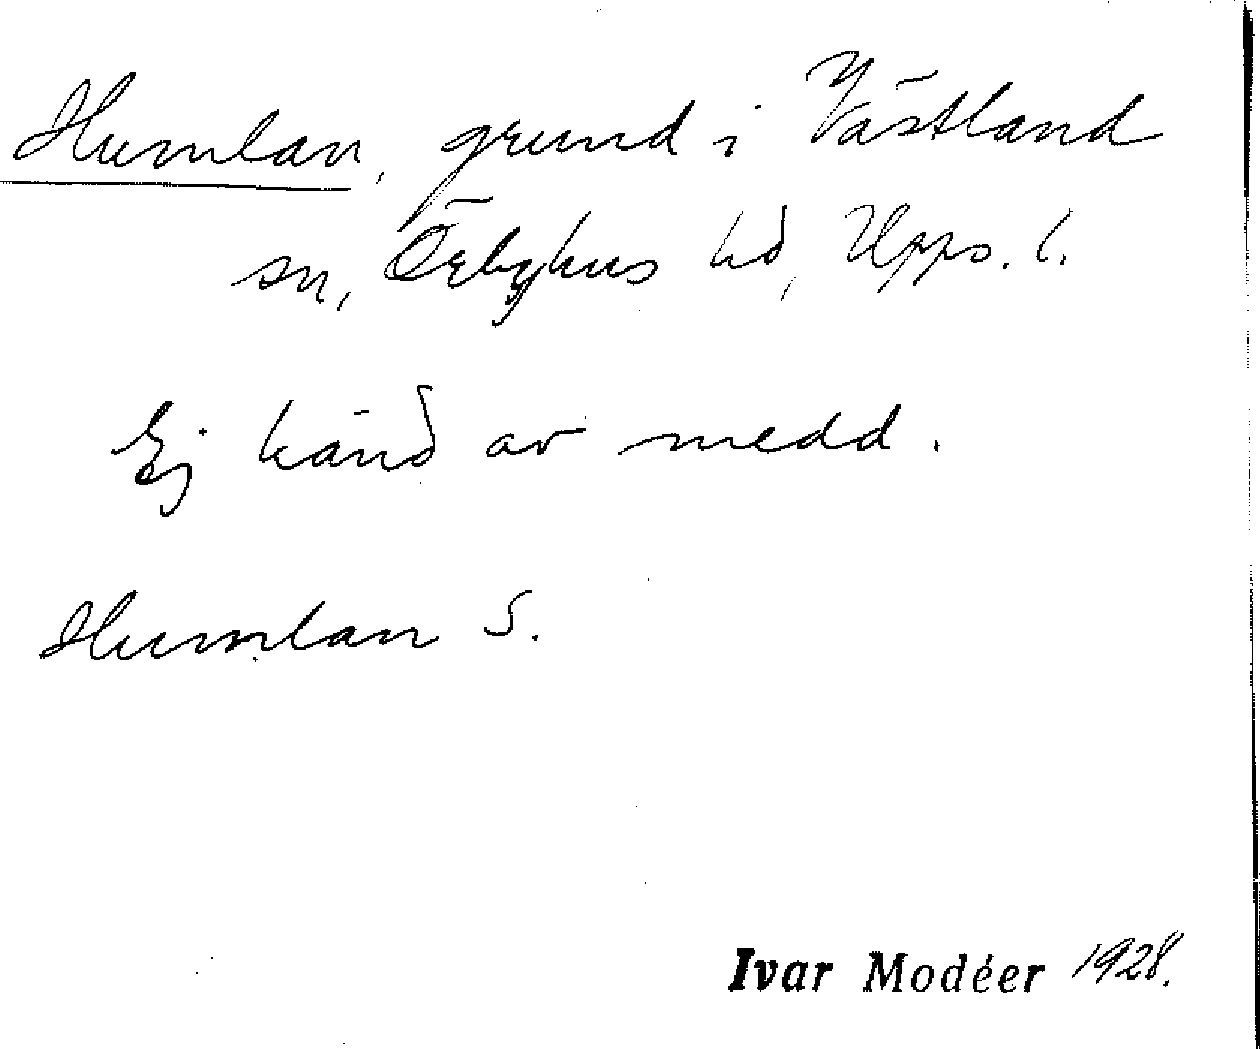 Humlan, grund i Västland
sn, Örbyhus hd, Upps. l.
Ej känd av medd.
Humlan S.
Ivar Modéer 1928.